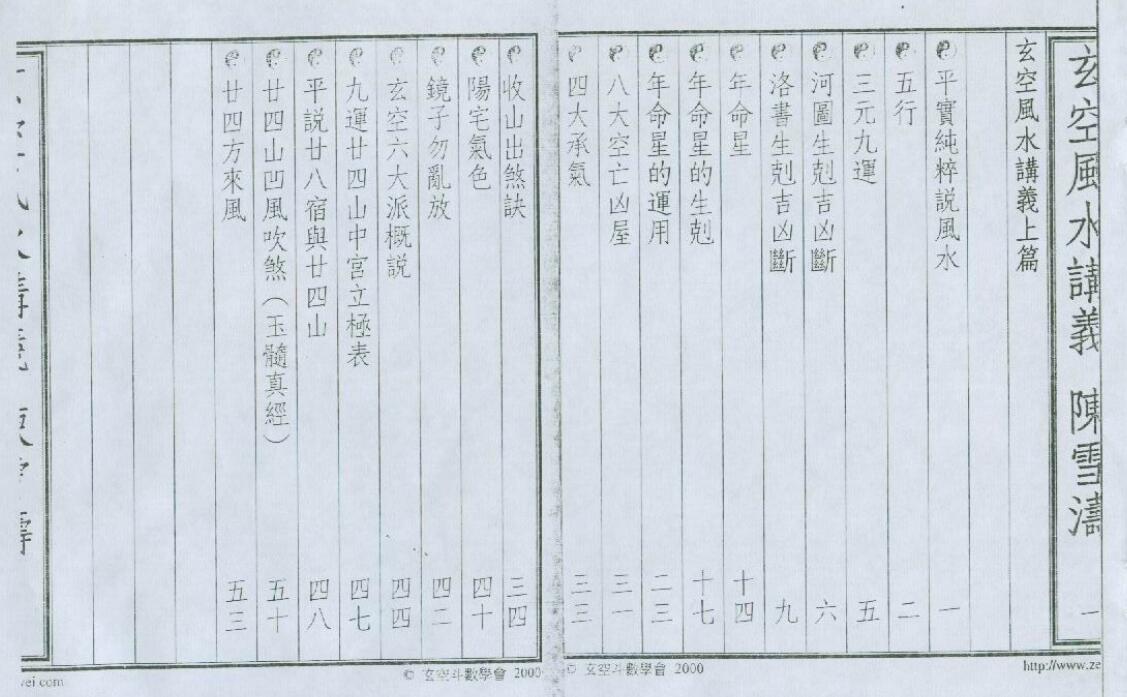 玄空風水講義 陳雪濤 一
玄空風水講義上篇
平實純粹説風水 一
五行 二
三元九運 五
河圖生剋吉凶斷 六
洛書生剋吉凶斷 九
年命星 十四
年命星的生剋 十七
年命星的運用 二三
八大空亡凶屋 三一
四大承氣 三三
收山出煞訣 三四
陽宅氣色 四十
鏡子勿亂放 四二
玄空六大派概説 四四
九運廿四山中宮立極表 四七
平説廿八宿與廿四山 四八
廿四山凹風吹煞（玉髓真經） 五十
廿四方來風 五三
http://www.ze
© 玄空斗數學會 2000
© 玄空斗數學會 2000
vei.com